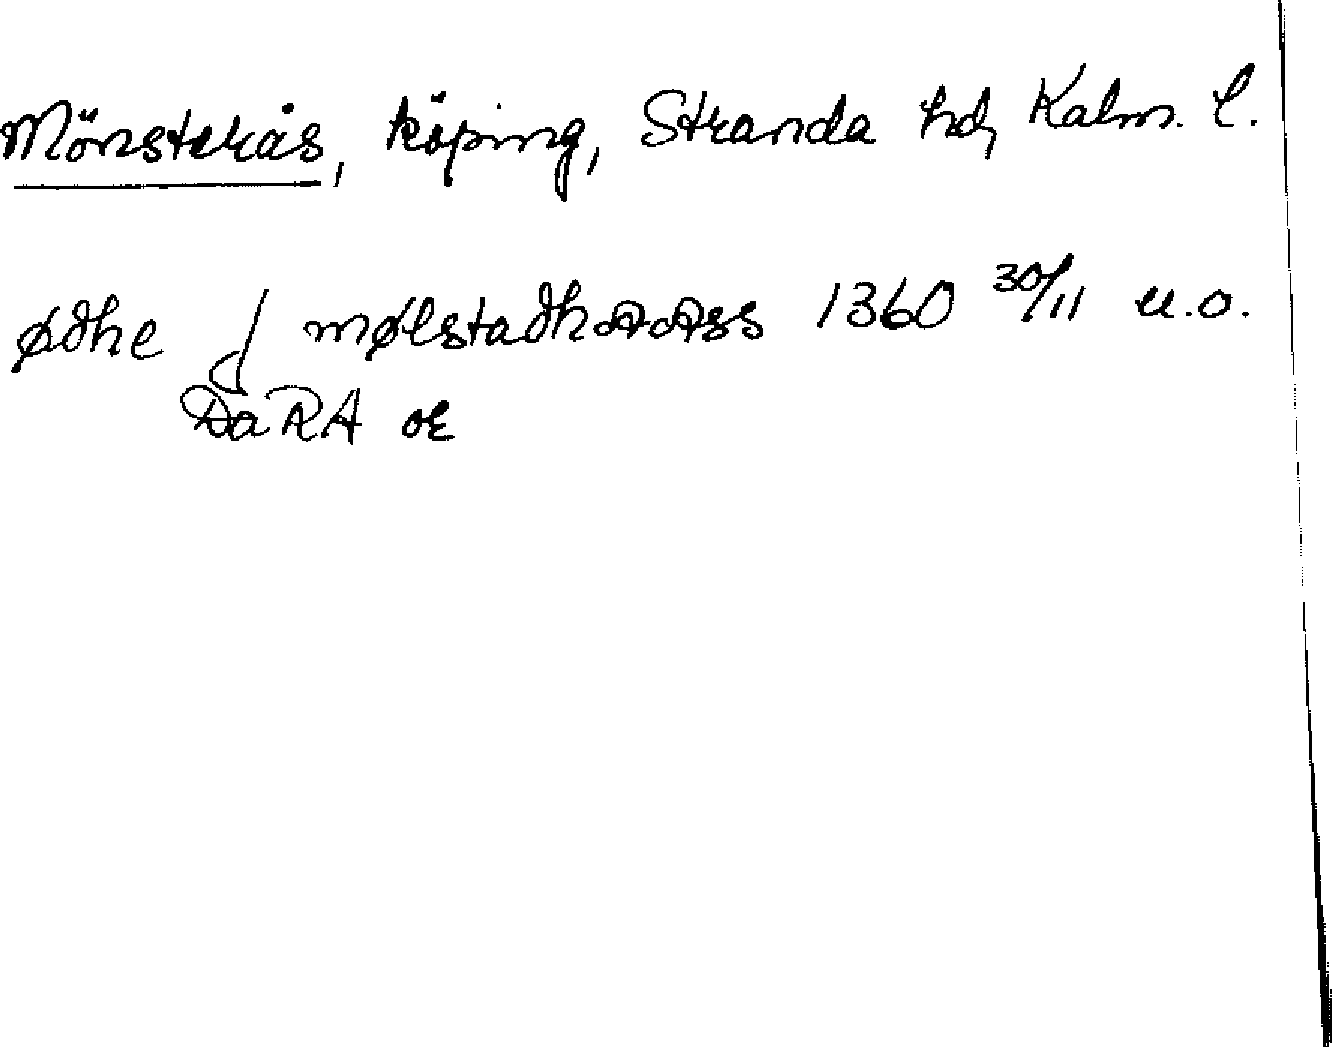 Mönsterås, köping, Stranda hd, Kalm. l.
ødhe j mølstadhaaass 1360 30/11 u.o.
DaRA or